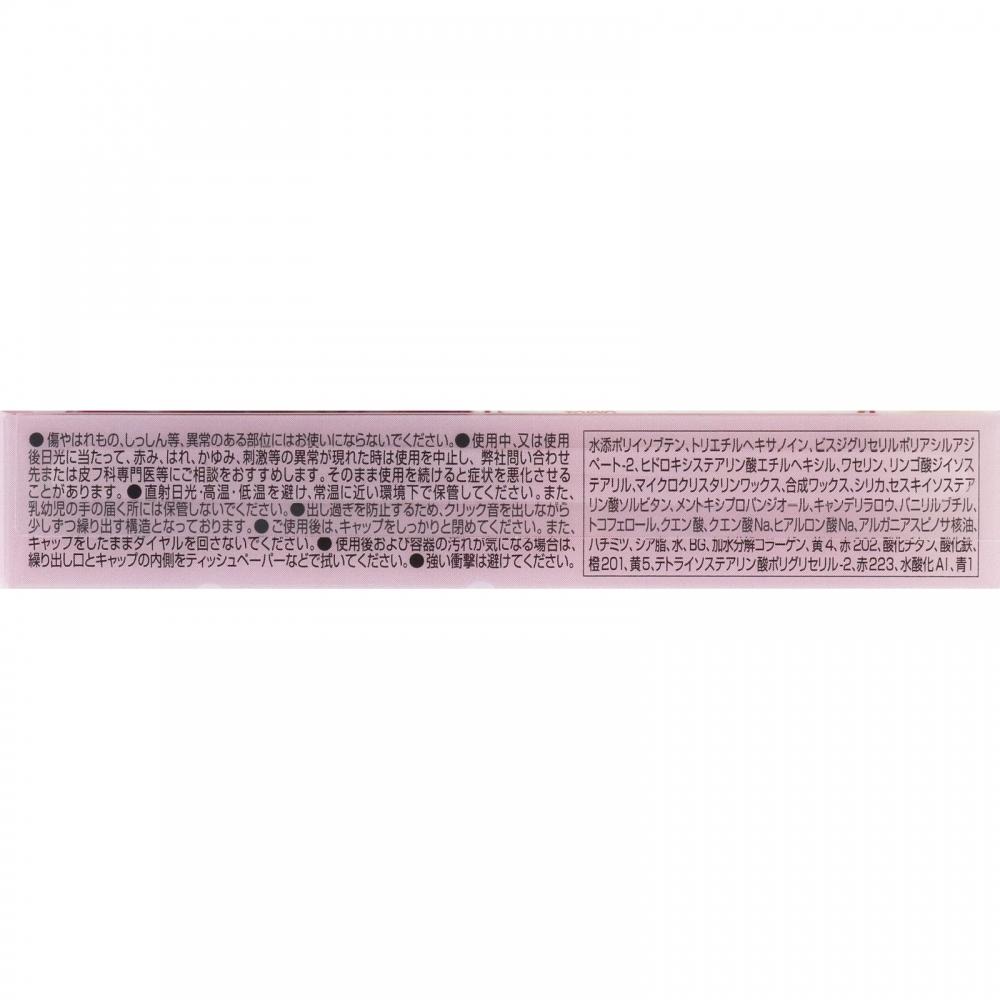 ● 傷やはれもの、しっしん等、異常のある部位にはお使いにならないでください。● 使用中、又は使用
後日光に当たって、赤み、はれ、かゆみ、刺激等の異常が現れた時は使用を中止し、弊社問い合わせ
先または皮フ科専門医等にご相談をおすすめします。そのまま使用を続けると症状を悪化させる
ことがあります。● 直射日光・高温・低温を避け、常温に近い環境下で保管してください。また、
乳幼児の手の届く所には保管しないでください。● 出し過ぎを防止するため、クリック音を出しながら
少しずつ繰り出す構造となっております。● ご使用後は、キャップをしっかりと閉めてください。また、
キャップをしたままダイヤルを回さないでください。● 使用後および容器の汚れが気になる場合は、
繰り出し口とキャップの内側をティッシュペーパーなどで拭いてください。● 強い衝撃は避けてください。
水添ポリイソブテン、トリエチルヘキサノイン、ビスジグリセリルポリアシルアジ
ペート-2、ヒドロキシステアリン酸エチルヘキシル、ワセリン、リンゴ酸ジイソス
テアリル、マイクロクリスタリンワックス、合成ワックス、シリカ、セスキイソステア
リン酸ソルビタン、メントキシプロパンジオール、キャンデリラロウ、バニリルブチル、
トコフェロール、クエン酸、クエン酸Na、ヒアルロン酸Na、アルガニアスピノサ核油、
ハチミツ、シア脂、水、BG、加水分解コラーゲン、黄4、赤202、酸化チタン、酸化鉄、
橙201、黄5、テトライソステアリン酸ポリグリセリル-2、赤223、水酸化Al、青1